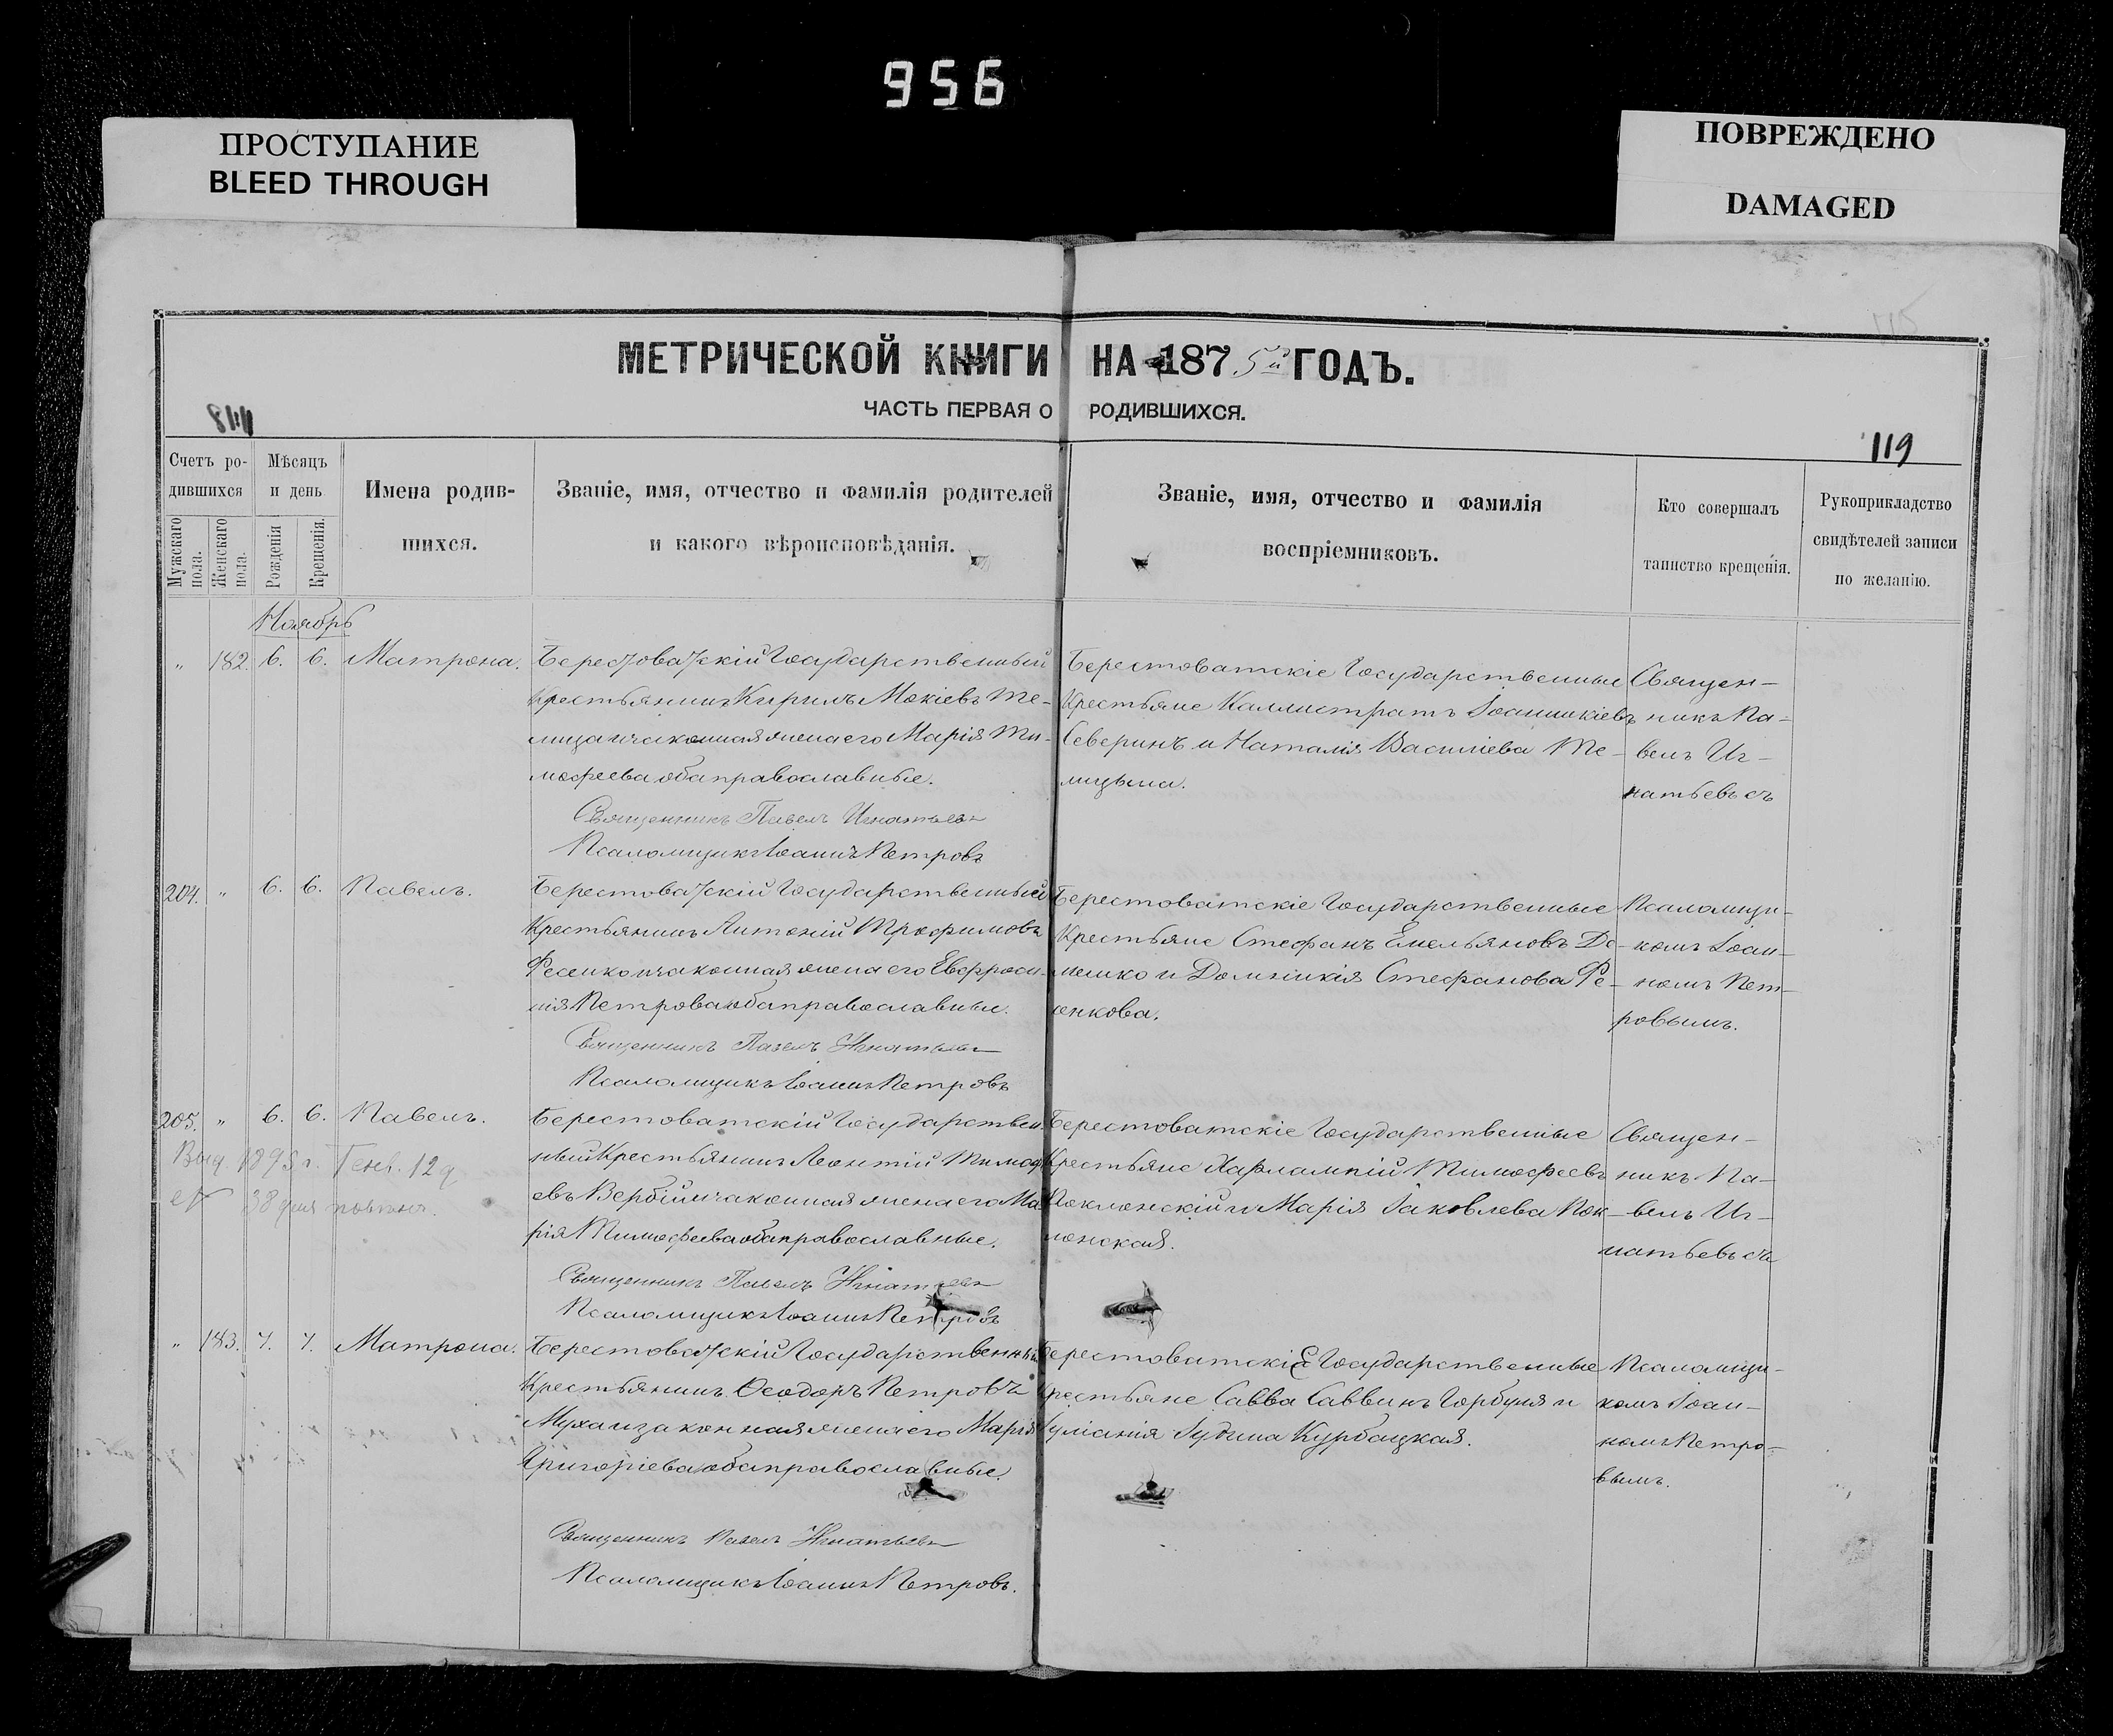 956
ПРОСТУПАНИЕ
BLEED THROUGH
ПОВРЕЖДЕНО
DAMAGED
МЕТРИЧЕСКОЙ КНИГИ НА 1875й ГОДЪ.
ЧАСТЬ ПЕРВАЯ О РОДИВШИХСЯ.
119
Счетъ ро-
дившихся
Мужскаго пола.
Женскаго пола.
Мѣсяцъ
и день
Рожденія
Крещенія.
Имена родив-
шихся.
Званіе, имя, отчество и фамилія родителей
и какого вѣроисповѣданія.
Званіе, имя, отчество и фамилія
воспріемниковъ.
Кто совершалъ
таинство крещенія.
Рукоприкладство
свидѣтелей записи
по желанію.
Ноябрь
„ 182. 6. 6. Матрона.
Берестоватскій Государственный
Крестьянинъ Кирилъ Мокіевъ Те-
лица и законная жена его Марія Ти-
мофеева оба православные.
Священникъ Павелъ Игнатьевъ
Псаломщикъ Іоаннъ Петровъ
Берестоватскіе Государственные
Крестьяне Каллистратъ Іоанникіевъ
Северинъ и Наталія Василіева Те-
лицына.
Священ-
никъ Па-
велъ Иг-
натьевъ съ
204. „ 6. 6. Павелъ.
Берестоватскій Государственный
Крестьянинъ Антоній Трофимовъ
Фесенко и законная жена его Евфроси-
нія Петрова оба православные.
Священникъ Павелъ Игнатьевъ
Псаломщикъ Іоаннъ Петровъ
Берестоватскіе Государственные
Крестьяне Стефанъ Емельяновъ Де-
мешко и Домникія Стефанова Фе-
сенкова.
Псаломщи-
комъ Іоан-
номъ Пет-
ровымъ.
205. „ 6. 6. Павелъ.
Выд. 1895 г. Генв. 12 д
Берестоватскій Государствен-
ный Крестьянинъ Леонтій Тимоф
евъ Вербій и законная жена его Ма
рія Тимофеева оба православные.
Священникъ Павелъ Игнатьевъ
Псаломщикъ Іоаннъ Петровъ
Берестоватскіе Государственные
Крестьяне Харлампій Тимофеевъ
Поклонскій и Марія Іаковлева Пок-
лонская.
Священ-
никъ Па-
велъ Иг-
натьевъ съ
„ 183. 7. 7. Матрона.
Берестоватскій Государственный
Крестьянинъ Ѳеодоръ Петровъ
Муха и законная жена его Марія
Григоріева оба православные.
Священникъ Павелъ Игнатьевъ
Псаломщикъ Іоаннъ Петровъ.
Берестоватскіе Государственные
Крестьяне Савва Саввинъ Горбуля и
Іуліанія Іудина Курбацкая.
Псаломщи-
комъ Іоан-
номъ Петро-
вымъ.